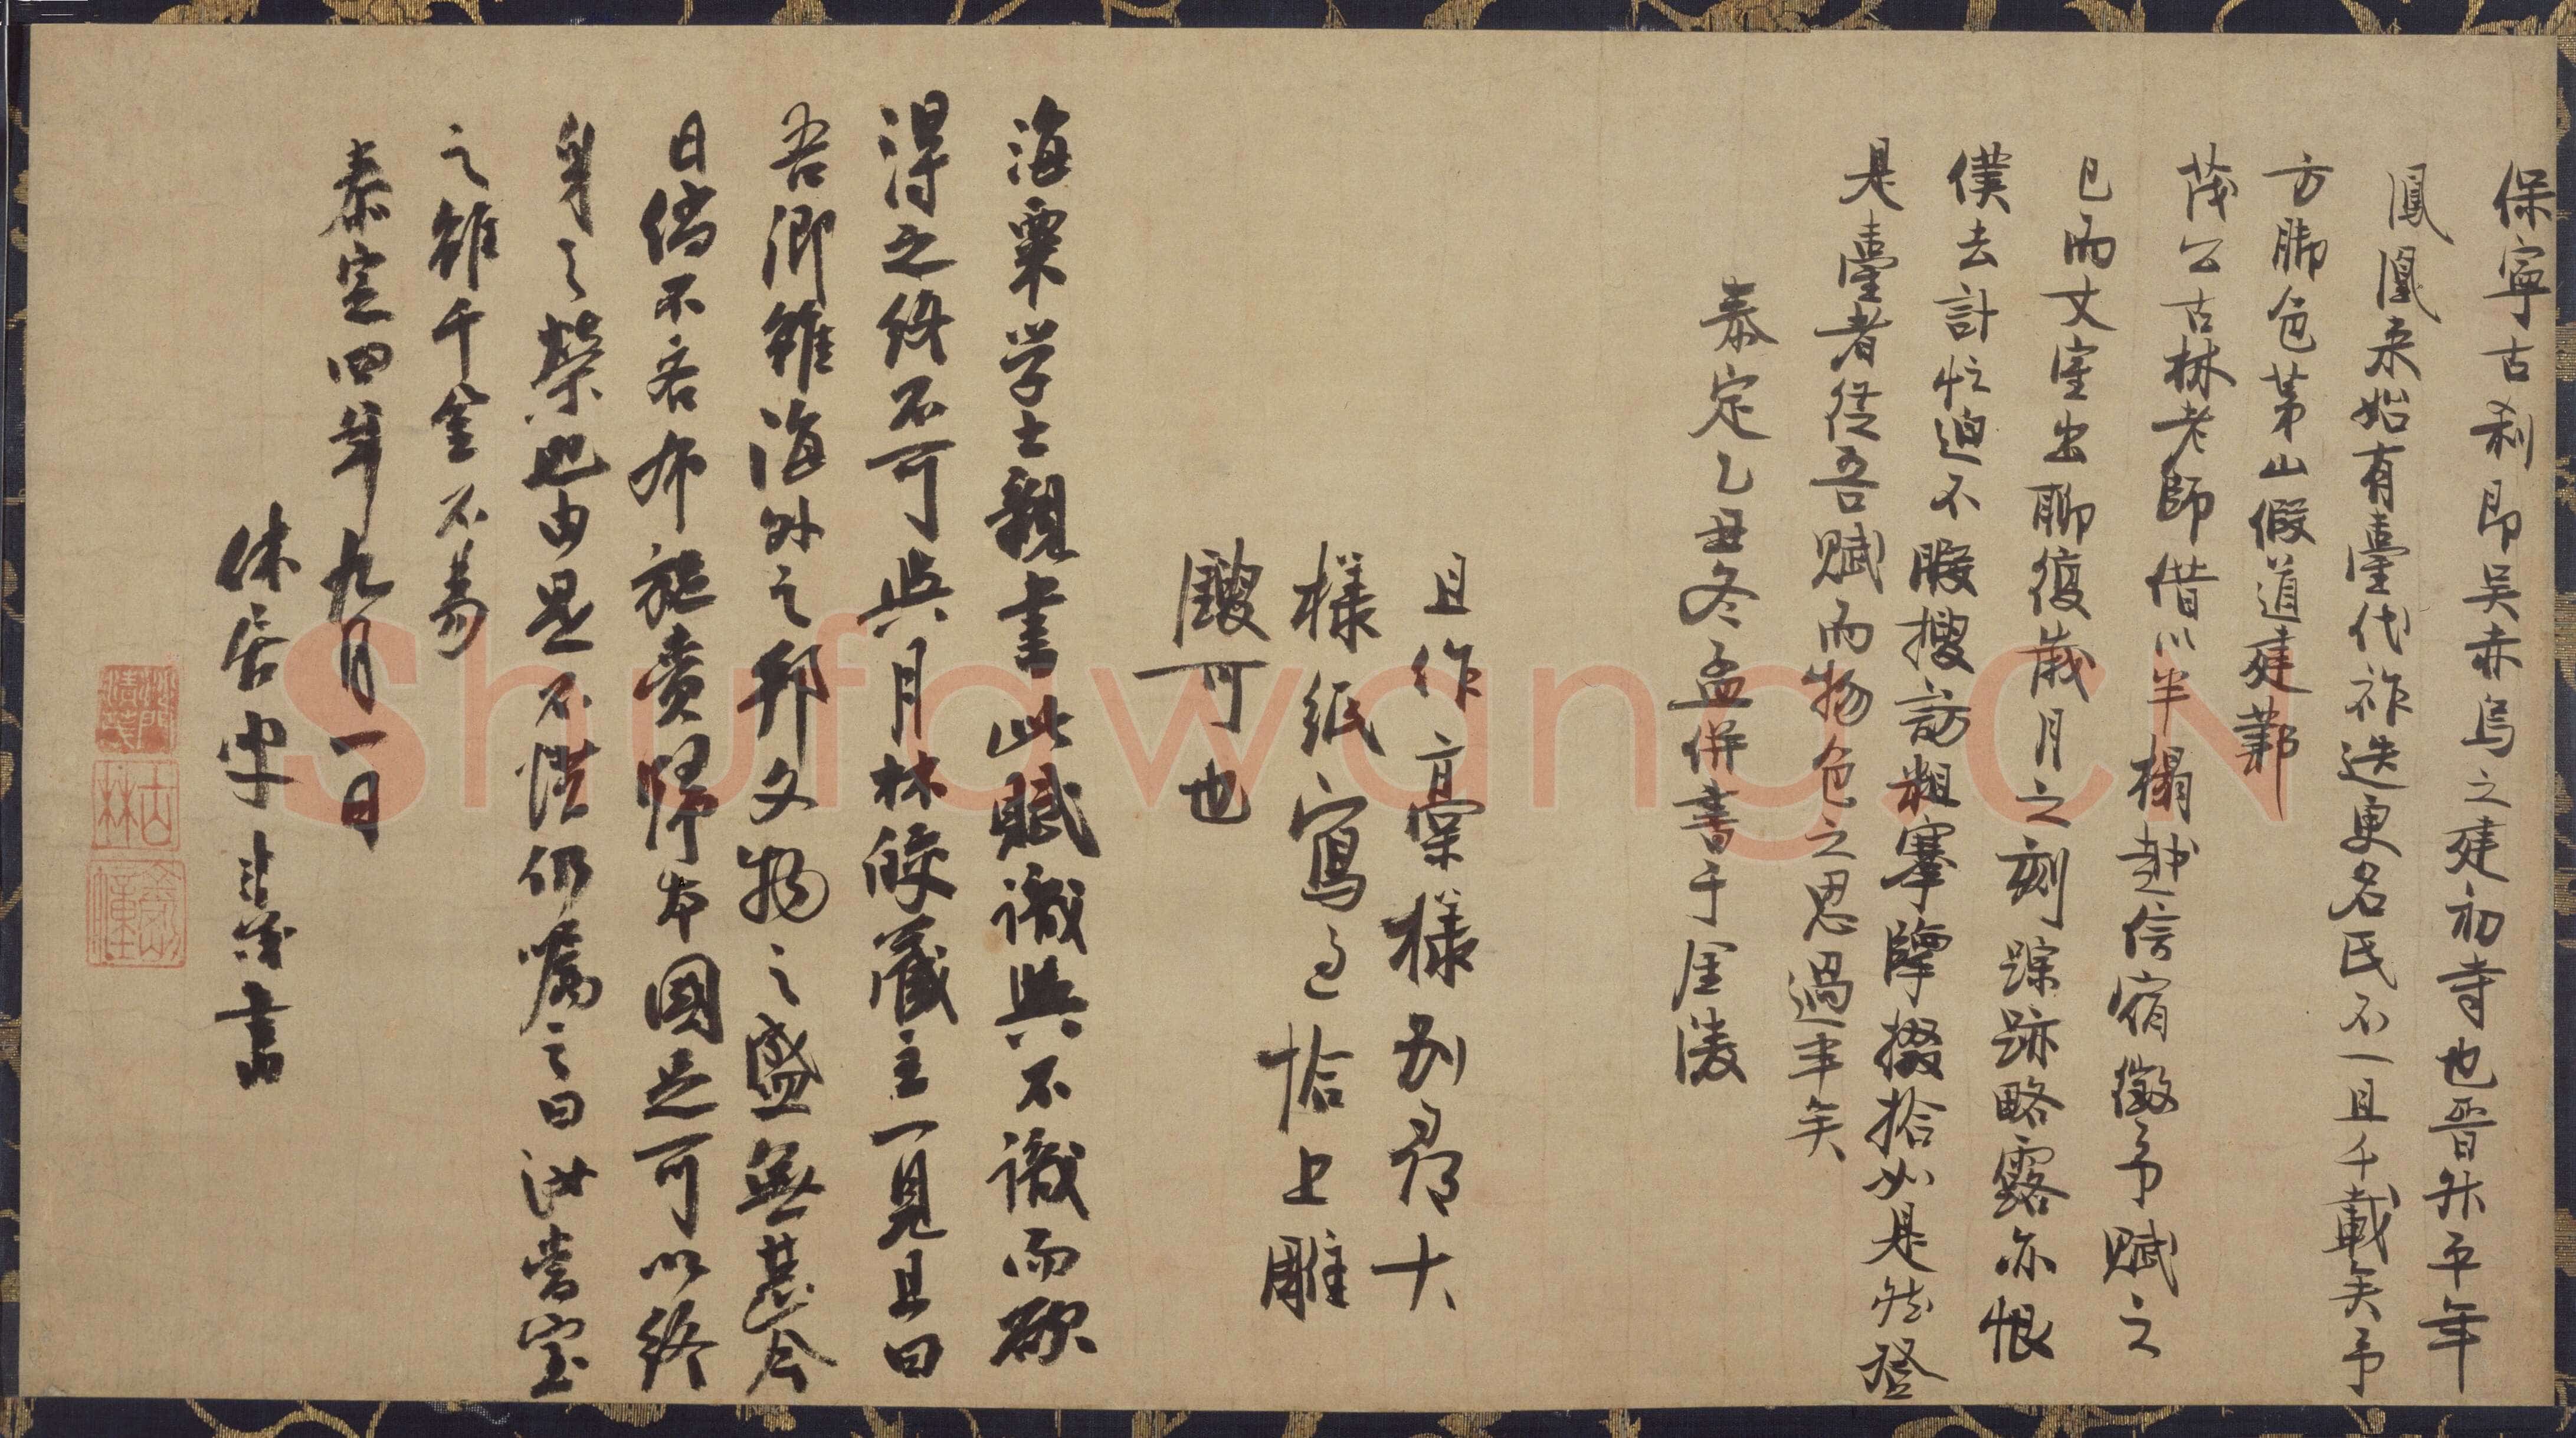 保寧古刹即吴赤烏之建初寺也晋升平年
鳳凰来始有臺代祚迭更名氏不一且千載矣予
方脚色茅山假道建鄴
茂公古林老師借以半榻越信宿徵予賦之
已而丈室出聊復歲月之刻蹤跡略露亦恨
僕去計忙迫不暇搜訪粗搴隼掇拾如是然登
是臺者從吾賦而物色之思過半矣
泰定乙丑冬孟併書于金陵
且作稾樣別尋大
樣紙寫過恰上雕
鍐可也
海粟学士親書此賦識與不識而欲
得之終不可與月林皎藏主一見且曰
吾卿雖海外之邦文物之盛無甚今
日倘不吝布施賫歸本國足可以終
身之榮也由是不惜仍嘱之曰汝當宝
之雖千金不易
泰定四年九月一日
休居叟清茂書
古林
Shufawang.CN